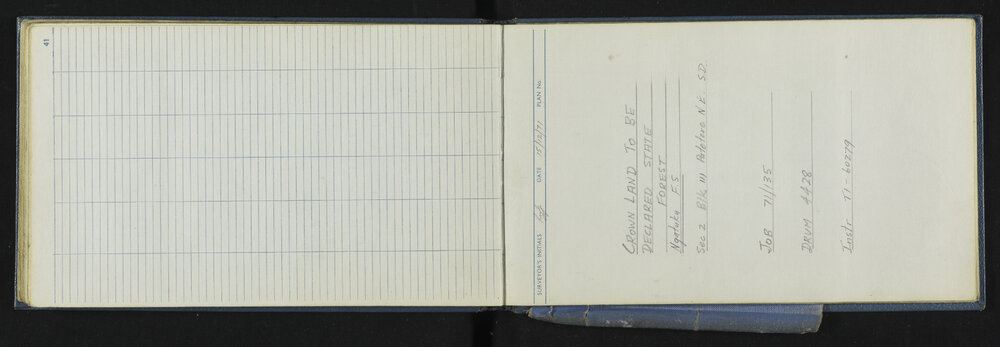 41
SURVEYOR'S INITIALS DATE 15/12/71 PLAN No.
CROWN LAND TO BE
DECLARED STATE
FOREST
Ngatuku F.S.
Sec 2 Blk III Patetere N.E. S.D.
JOB 71/135
DRUM 4428
Instr T1-60279